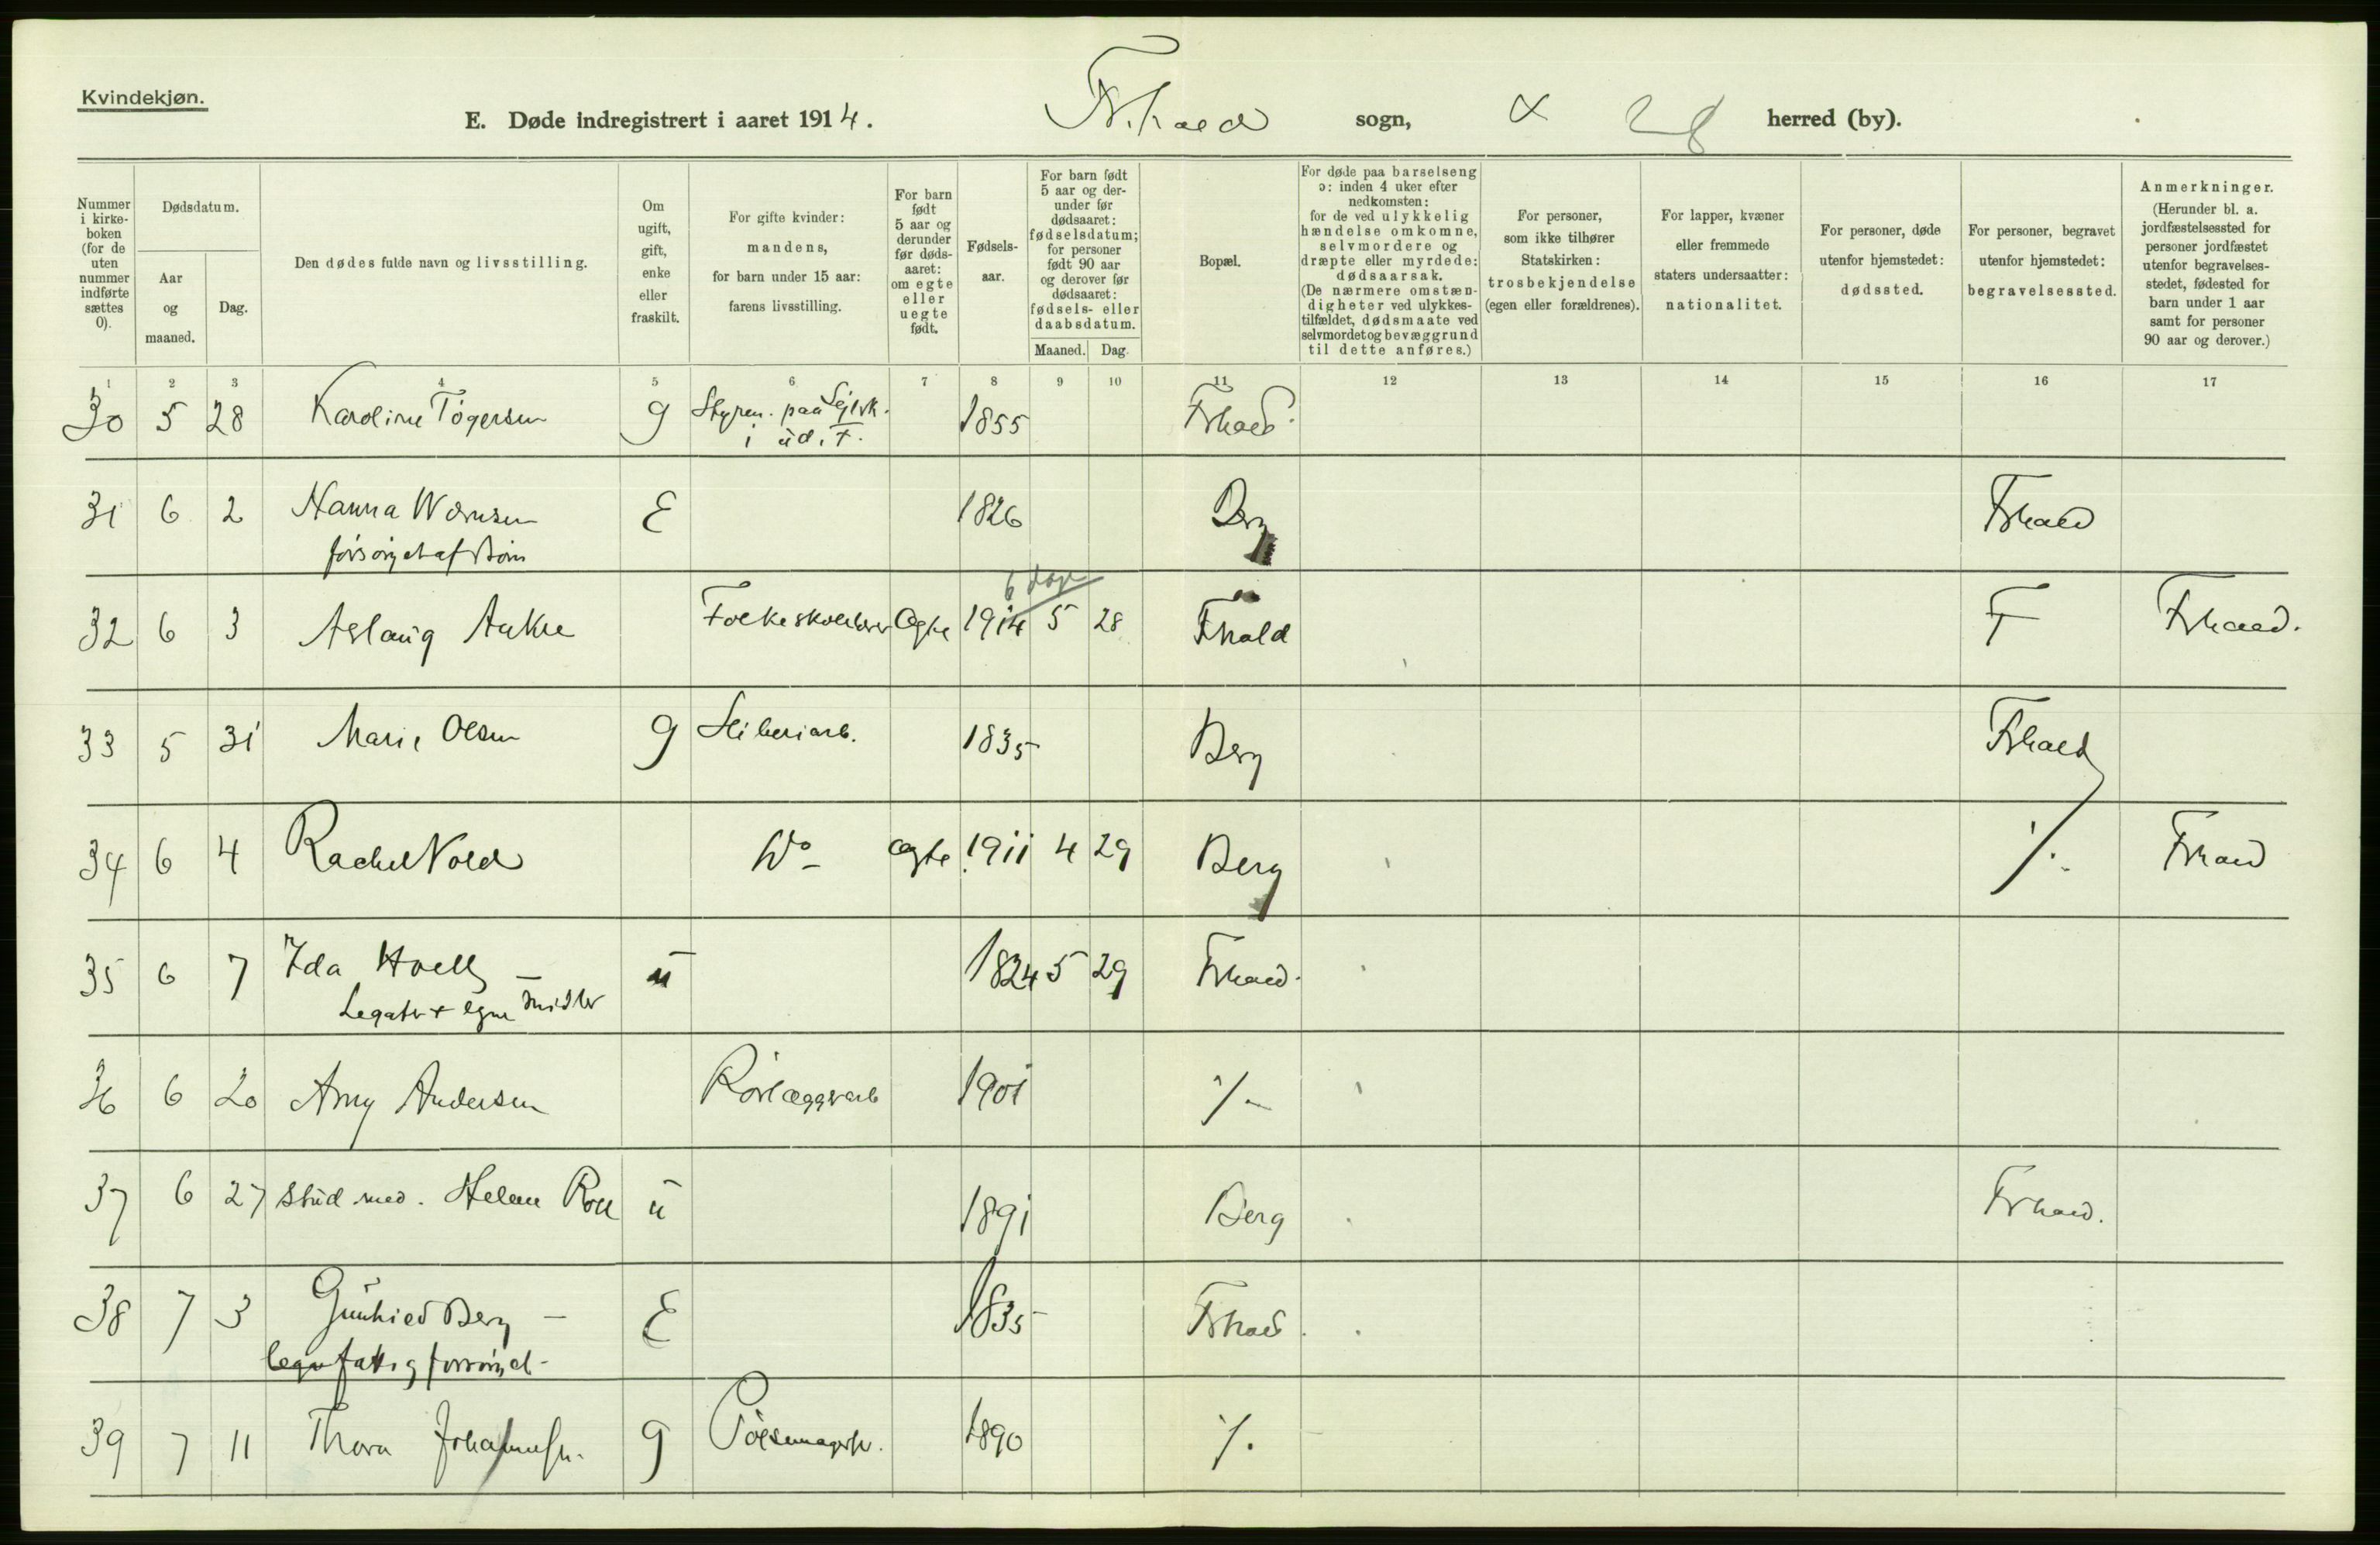 Kvindekjøn.
E. Døde indregistrert i aaret 1914. Fr.hald sogn, herred (by).
Nummer i kirke- boken (for de uten nummer indførte sættes 0).
Dødsdatum.
Aar og maaned.
Dag.
Den dødes fulde navn og livsstilling.
Om ugift, gift, enke eller fraskilt.
For gifte kvinder: mandens, for barn under 15 aar: farens livsstilling.
For barn født 5 aar og derunder før døds- aaret: om egte eller uegte født.
Fødsels- aar.
For barn født 5 aar og der- under før dødsaaret: fødselsdatum; for personer født 90 aar og derover før dødsaaret: fødsels- eller daabsdatum.
Maaned. Dag.
Bopæl.
For døde paa barselseng ɔ: inden 4 uker efter nedkomsten: for de ved ulykkelig hændelse omkomne, selvmordere og dræpte eller myrdede: dødsaarsak. (De nærmere omstæn- digheter ved ulykkes- tilfældet, dødsmaate ved selvmordet og bevæggrund til dette anføres.)
For personer, som ikke tilhører Statskirken: trosbekjendelse (egen eller forældrenes).
For lapper, kvæner eller fremmede staters undersaatter: nationalitet.
For personer, døde utenfor hjemstedet: dødssted.
For personer, begravet utenfor hjemstedet: begravelsessted.
Anmerkninger. (Herunder bl. a. jordfæstelsessted for personer jordfæstet utenfor begravelses- stedet, fødested for barn under 1 aar samt for personer 90 aar og derover.)
1 2 3 4 5 6 7 8 9 10 11 12 13 14 15 16 17
30 5 28 Karoline Tøgersen g Styrm. paa Sejlsk. 1855 Frhald
i ud. F.
31 6 2 Nanna Wærnsen E 1826 Berg Frhald
forsørget af Børn
6 dage
32 6 3 Aslaug Aakre Folkeskolelærer Ægte 1914 5 28 Frhald F Frhald.
33 5 31 Marie Olsen g Sliberiarb. 1835 Berg Frhald
34 6 4 Rachel Vold Do ægte 1911 4 29 Berg Frhald
35 6 7 Ida Hoell u 1824 5 29 Frhald.
Legater + egne Midler
36 6 20 Amy Andersen Rørlæggerarb 1901
37 6 27 stud med. Helene Roll u 1891 Berg Frhald.
38 7 3 Gunhild Berg E 1835 Frhald.
fattigforsørget
39 7 11 Thora Johannesen. g Pølsemager 1890